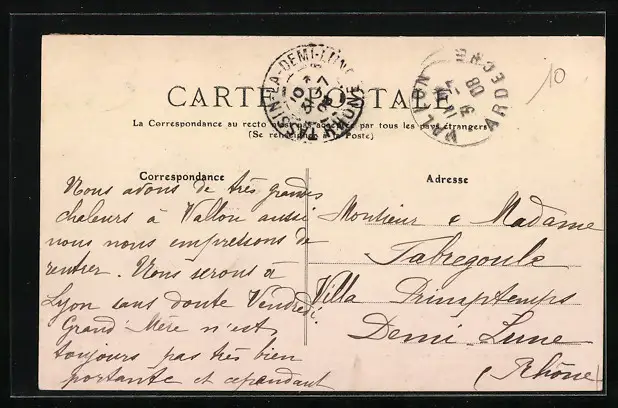 CARTE POSTALE
La Correspondance au recto par tous les pays étrangers
(Se renseigner à la Poste)
TASSIN-LA-DEMI-LUNE
RHÔNE
VALLON
ARDECHE
10
Correspondance
Nous avons de très grandes
chaleurs à Vallon aussi
nous nous empressons de
rentrer. Nous serons à
Lyon sans doute Vendredi.
Grand' Mère n'est
toujours pas très bien
portante et cependant
Adresse
Monsieur & Madame
Fabregoule
Villa Printemps
Demi Lune
(Rhône)